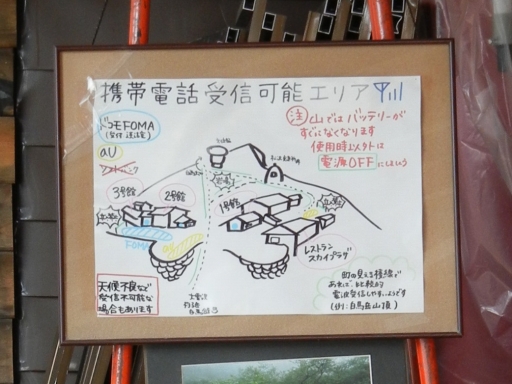 携帯電話受信可能エリア
ドコモFOMA
au
注 山ではバッテリーが
すぐになくなります
使用時以外は
電源OFFにしよう
3号館
2号館
1号館
FOMA
レストラン
スカイプラザ
天候不良など
受信不可能な
場合もあります
町の見える稜線で
あれば、比較的
電波受信しやすいようです
(例:白馬岳山頂)